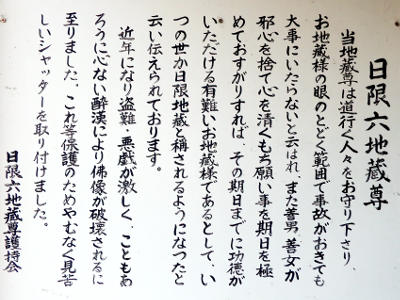 日限六地蔵尊
当地蔵尊は道行く人々をお守り下さり、
お地蔵様の眼のとどく範囲で事故がおきても
大事にいたらないと云はれ、また善男、善女が
邪心を捨て心を清くもち願い事を期日を極
めておすがりすれば、その期日までに功徳が
いただける有難いお地蔵様であるとして、い
つの世か日限地蔵と称されるようになったと
云い伝えられております。
近年になり盗難・悪戯が激しく、こともあ
ろうに心ない酔漢により佛像が破壊されるに
至りました。これ等保護のためやむなく見苦
しいシャッターを取り付けました。
日限六地蔵尊護持会